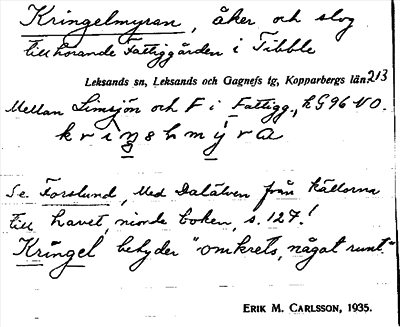 Kringelmyran, åker och slog
tillhörande Fattiggården i Tibble
Leksands sn, Leksands och Gagnefs tg, Kopparbergs län 213
Mellan Limsjön och F i Fattigg., k G96 NO.
kriŋəlmýra
Se. Forslund, Med Dalälven från källorna
till havet, nionde boken, s. 127!
Kringel betyder "omkrets, något runt."
ERIK M. CARLSSON, 1935.